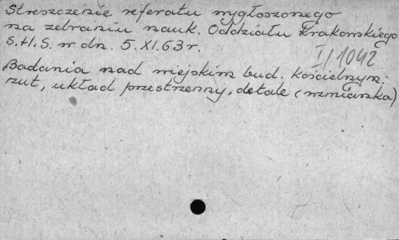 Streszczenie referatu wygłoszonego
na zebraniu nauk. Oddziału Krakowskiego
S.H.S. w dn. 5.XI.63 r.
I/1042
Badania nad wiejskim bud. kościelnym:
rzut, układ przestrzenny, detale (wzmianka)